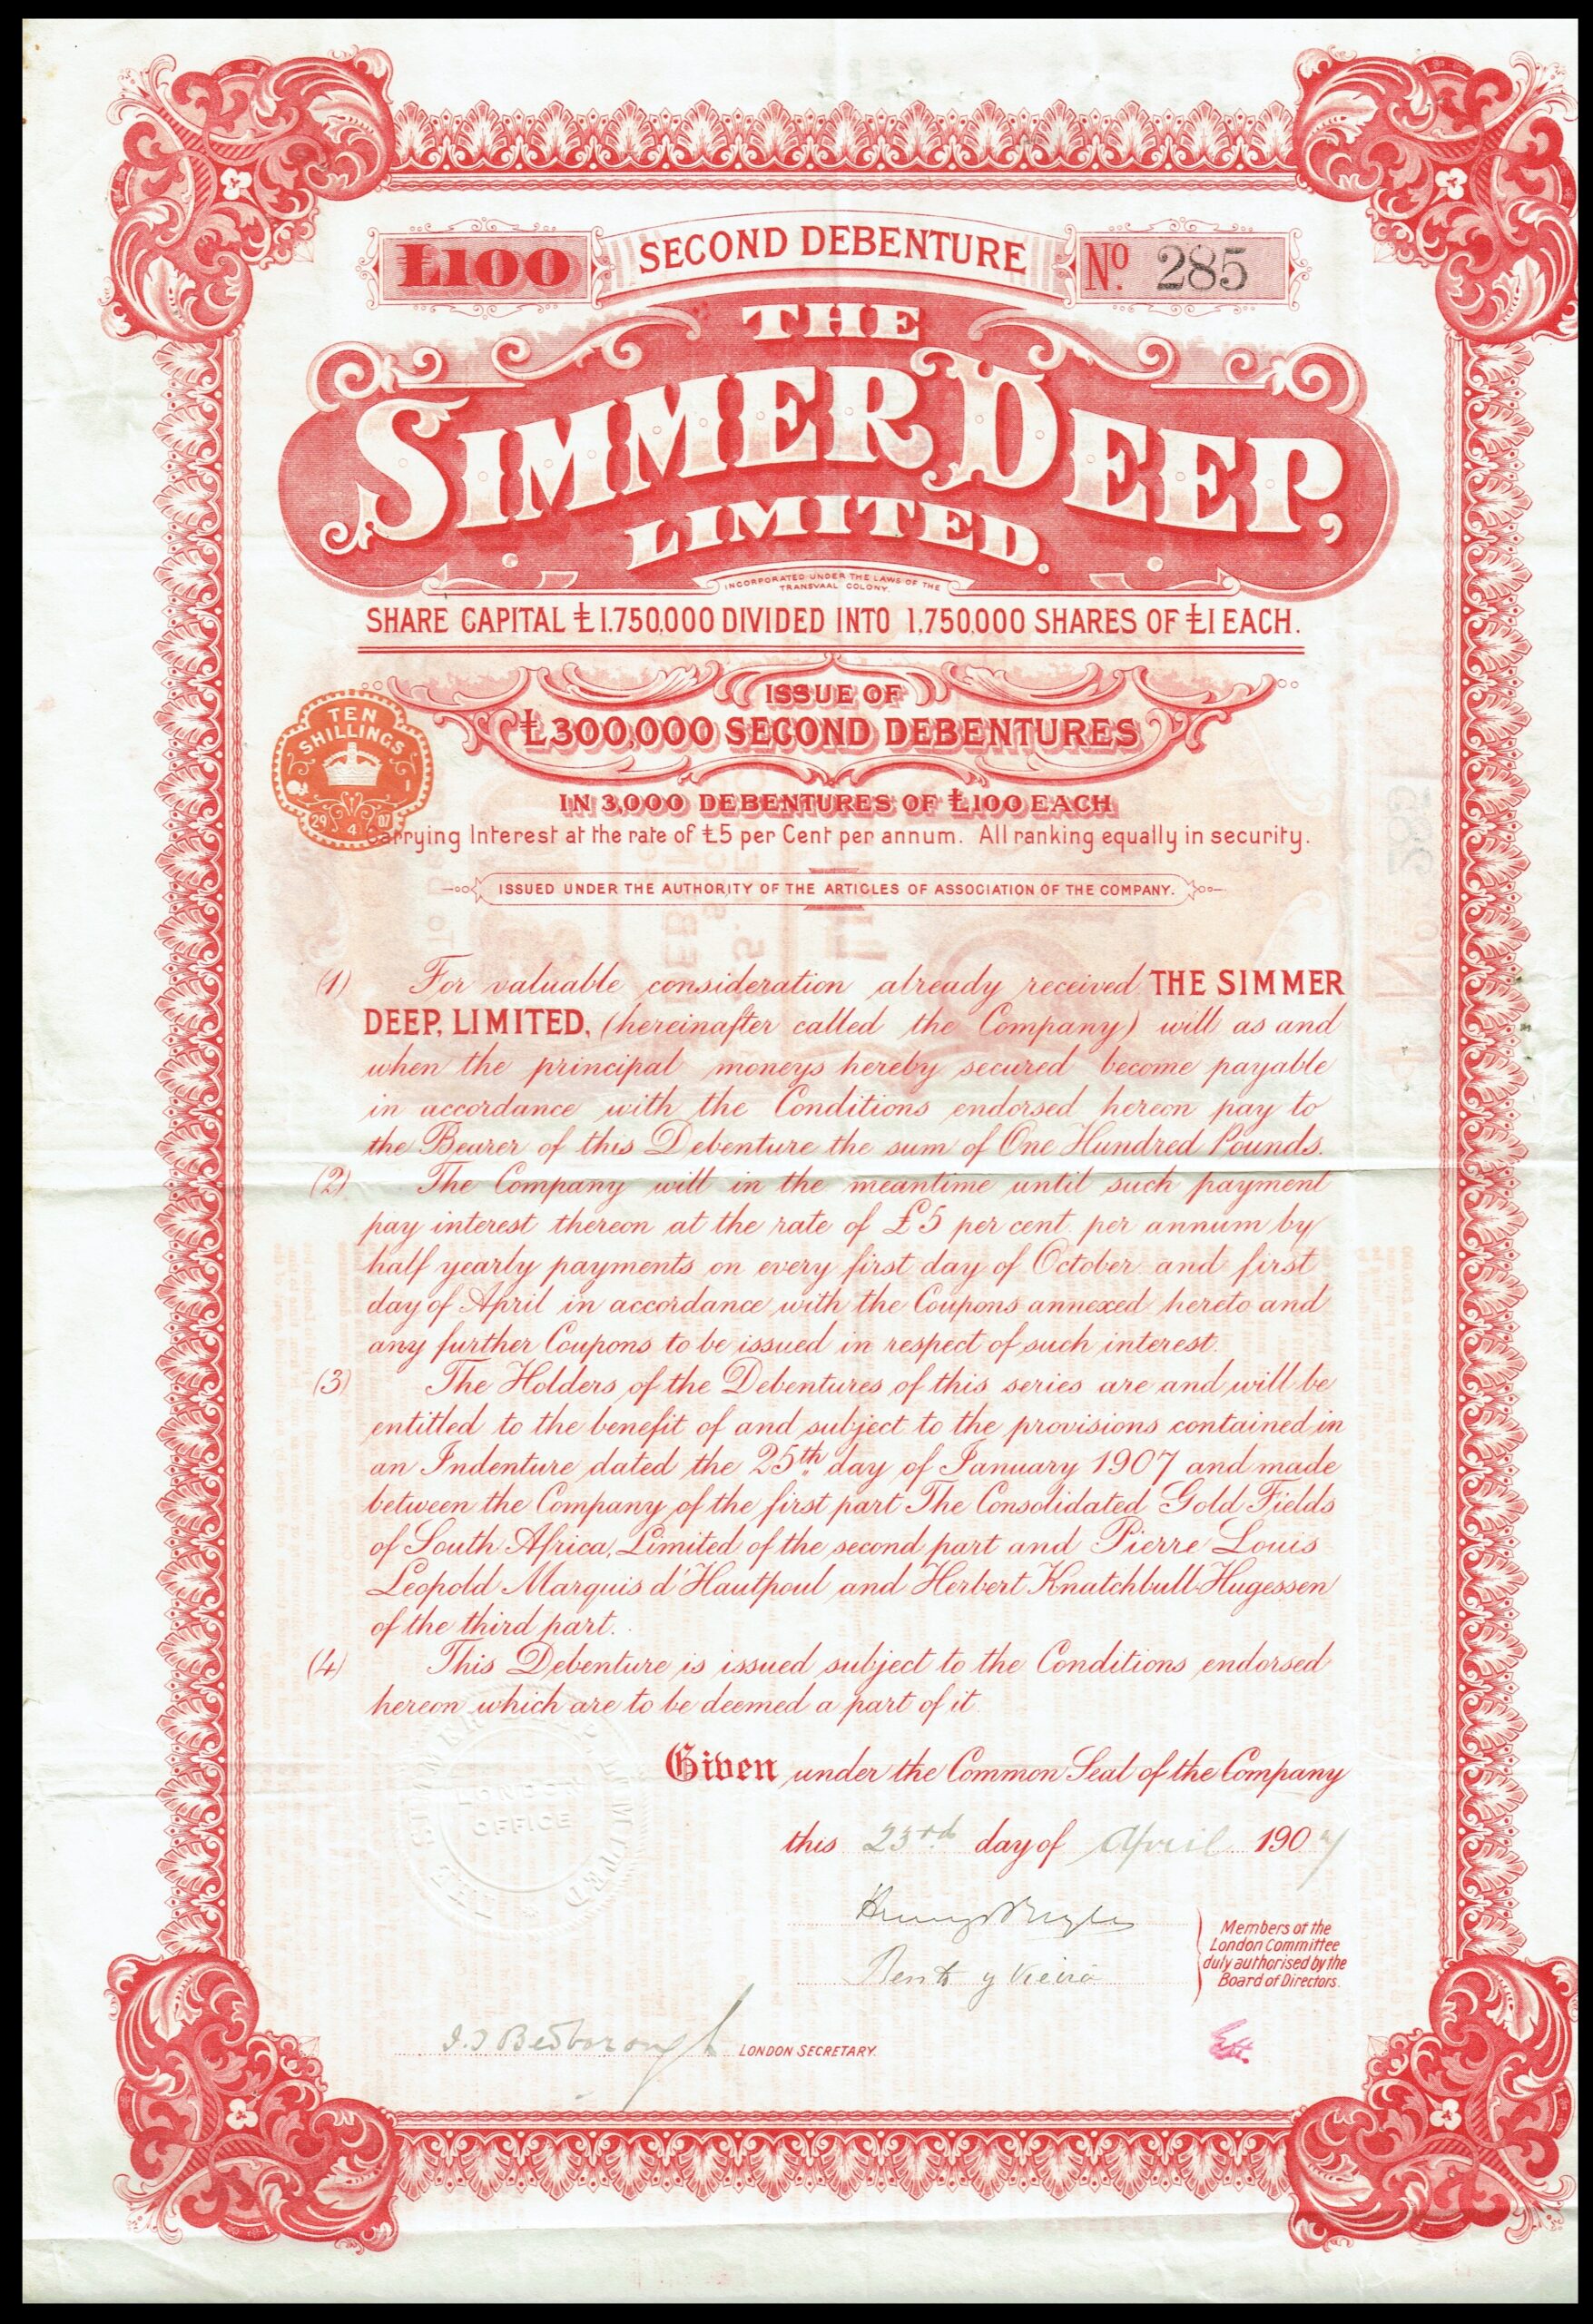 £100
SECOND DEBENTURE
No. 285
THE
SIMMER DEEP,
LIMITED.
INCORPORATED UNDER THE LAWS OF THE
TRANSVAAL COLONY.
SHARE CAPITAL £1.750,000 DIVIDED INTO 1,750,000 SHARES OF £1 EACH.
ISSUE OF
£300,000 SECOND DEBENTURES
IN 3,000 DEBENTURES OF £100 EACH
TEN
SHILLINGS
29 4 07
Carrying Interest at the rate of £5 per Cent per annum. All ranking equally in security.
ISSUED UNDER THE AUTHORITY OF THE ARTICLES OF ASSOCIATION OF THE COMPANY.
(1) For valuable consideration already received THE SIMMER
DEEP, LIMITED, (hereinafter called the Company) will as and
when the principal moneys hereby secured become payable
in accordance with the Conditions endorsed hereon pay to
the Bearer of this Debenture the sum of One Hundred Pounds.
(2) The Company will in the meantime until such payment
pay interest thereon at the rate of £5 per cent. per annum by
half yearly payments on every first day of October and first
day of April in accordance with the Coupons annexed hereto and
any further Coupons to be issued in respect of such interest.
(3) The Holders of the Debentures of this series are and will be
entitled to the benefit of and subject to the provisions contained in
an Indenture dated the 25th day of January 1907 and made
between the Company of the first part The Consolidated Gold Fields
of South Africa, Limited of the second part and Pierre Louis
Leopold Marquis d'Hautpoul and Herbert Knatchbull-Hugessen
of the third part.
(4) This Debenture is issued subject to the Conditions endorsed
hereon which are to be deemed a part of it.
Given under the Common Seal of the Company
LONDON
OFFICE
this 23rd day of April 1907
Members of the
London Committee
duly authorised by the
Board of Directors.
Bedborough LONDON SECRETARY.